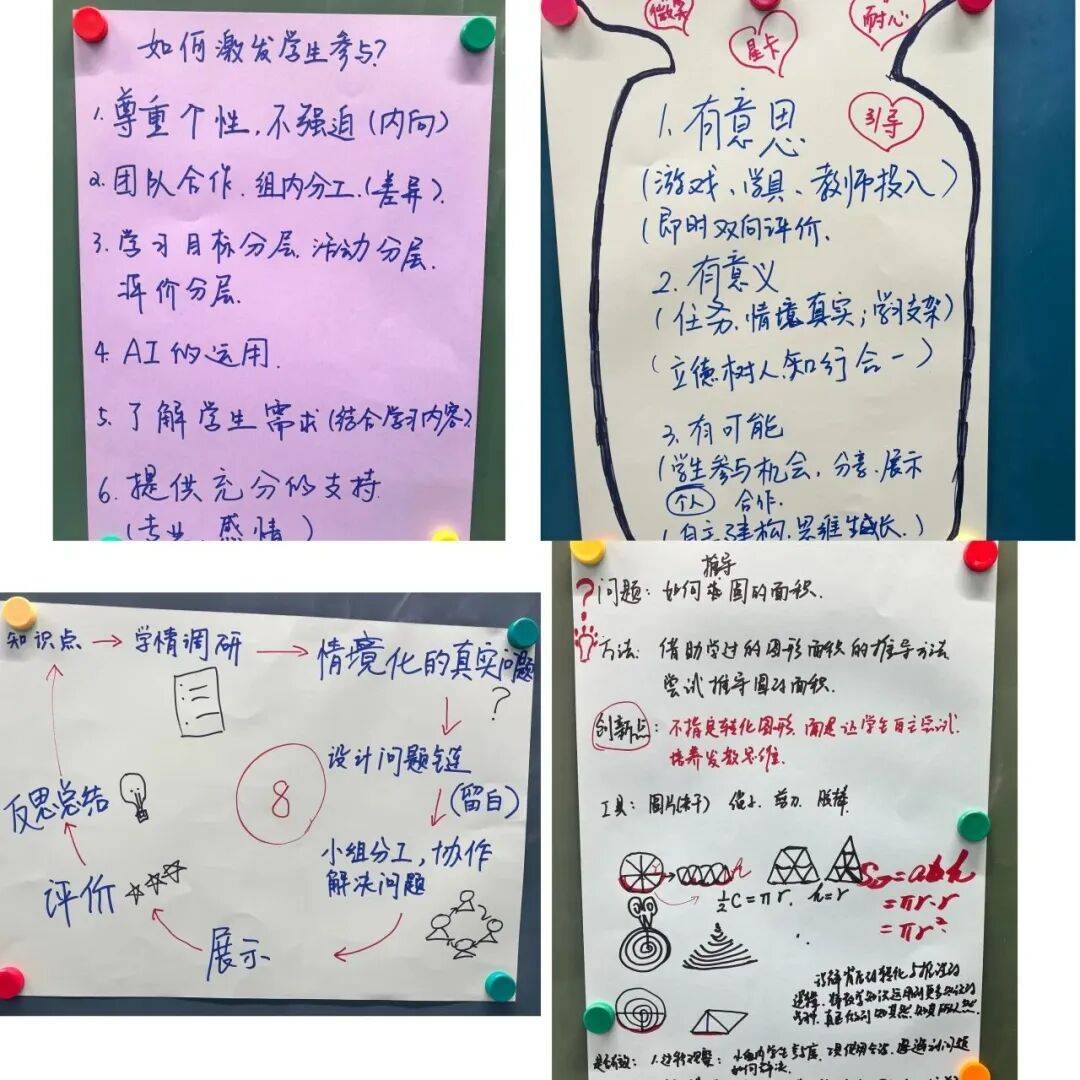 如何激发学生参与?
1. 尊重个性,不强迫(内向)
2. 团队合作、组内分工、(差异).
3. 学习目标分层、活动分层、
评价分层.
4. AI的运用.
5. 了解学生需求(结合学习内容)
6. 提供充分的支持.
(专业、感情)
微笑
星卡
耐心
引导
1. 有意思
(游戏、学具、教师投入)
(即时双向评价.
2. 有意义
(任务、情境真实;学习支架)
(立德树人.知行合一)
3. 有可能
(学生参与机会、分享、展示
个人 合作.
(自主建构.思维生长.)
知识点 → 学情调研 → 情境化的真实问题
?
设计问题链
(留白)
小组分工,协作
解决问题
展示
评价
反思总结
8
推导
? 问题: 如何求圆的面积.
方法: 借助学过的图形面积的推导方法
尝试推导圆的面积.
创新点: 不指定转化图形,而是让学生自主尝试,
培养发散思维.
工具: 圆片(若干) 剪刀、胶棒
h
½C=πr. h=r
S=ah
=πr·r
=πr²